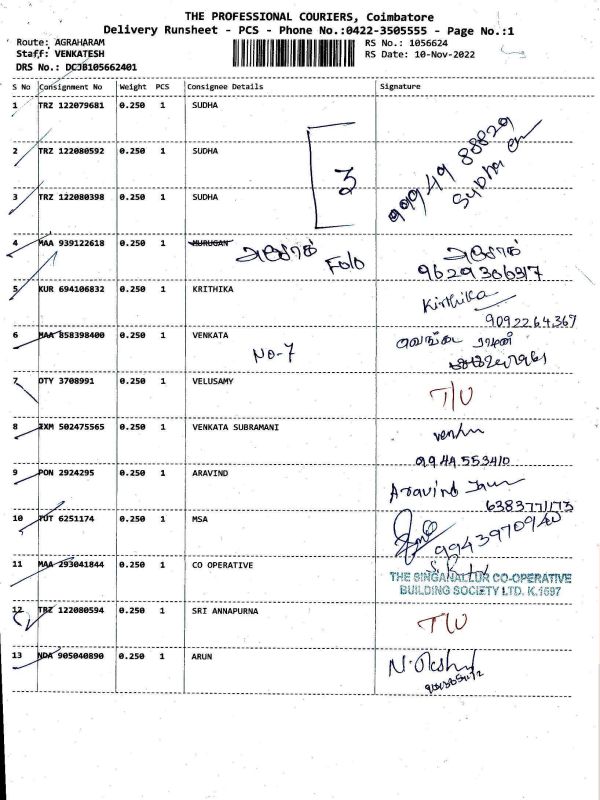 THE PROFESSIONAL COURIERS, Coimbatore
Delivery Runsheet - PCS - Phone No.:0422-3505555 - Page No.:1
Route: AGRAHARAM RS No.: 1056624
Staff: VENKATESH RS Date: 10-Nov-2022
DRS No.: DCJB105662401
S No Consignment No Weight PCS Consignee Details Signature
1 TRZ 122079681 0.250 1 SUDHA
2 TRZ 122080592 0.250 1 SUDHA
3 99949 88829
Sudha
3 TRZ 122080398 0.250 1 SUDHA
4 MAA 939122618 0.250 1 MURUGAN
5 KUR 694106832 0.250 1 KRITHIKA Kirthika
9092264367
6 MAA 858398400 0.250 1 VENKATA வெங்கட
NO-7
7 DTY 3708991 0.250 1 VELUSAMY T/U
8 ZXM 502475565 0.250 1 VENKATA SUBRAMANI
9944553410
9 PON 2924295 0.250 1 ARAVIND Aravind
6383771173
10 TUT 6251174 0.250 1 MSA
9943970940
11 MAA 293041844 0.250 1 CO OPERATIVE
THE SINGANALLUR CO-OPERATIVE
BUILDING SOCIETY LTD. K.1597
12 TRZ 122080594 0.250 1 SRI ANNAPURNA T/U
13 NDA 905040890 0.250 1 ARUN